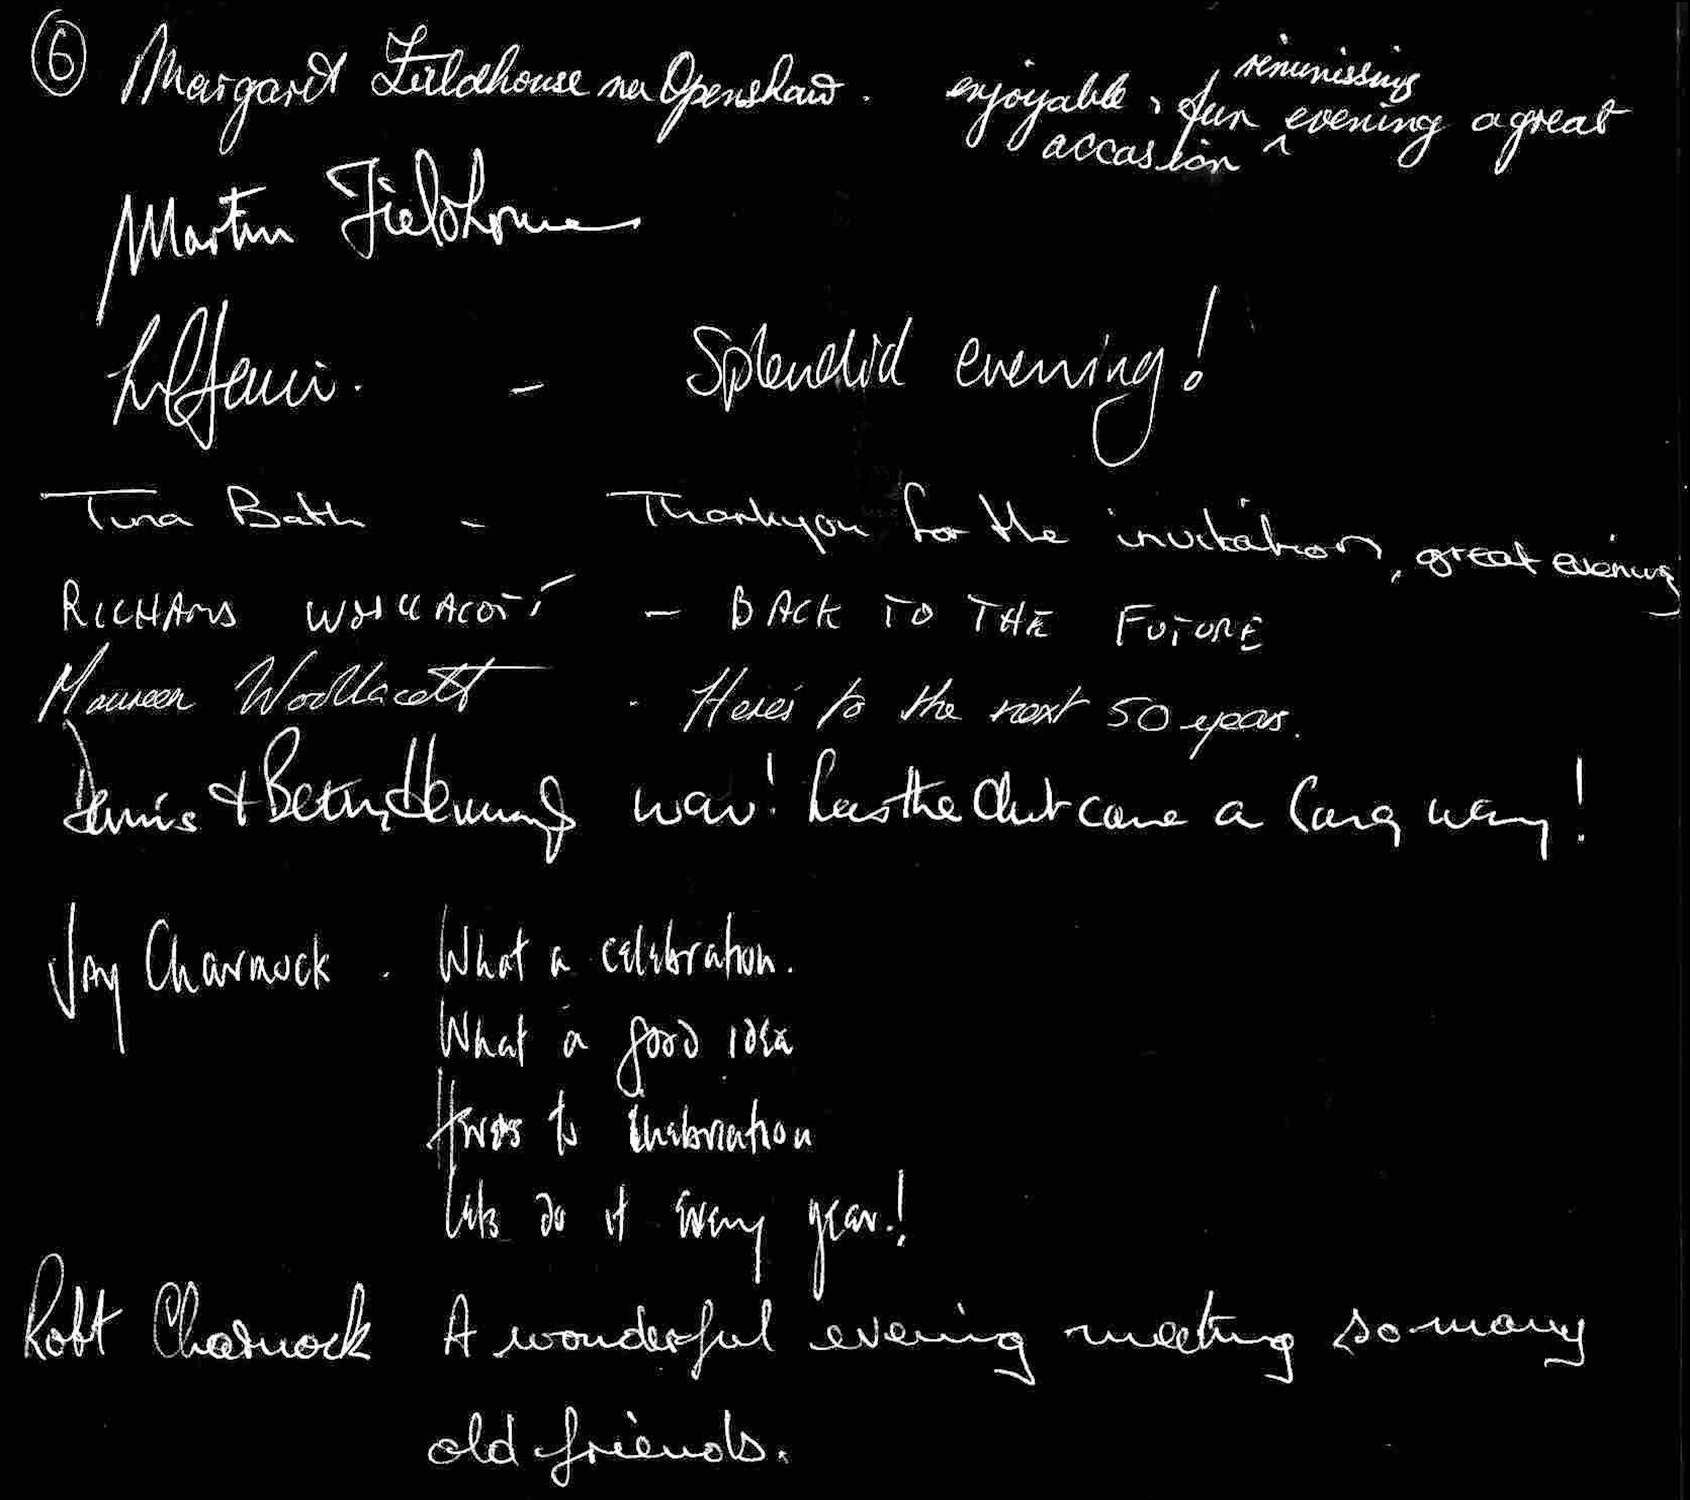 6 Margaret Fieldhouse nee Openshaw. enjoyable, fun ^ reminissing evening a great
accasion
Martin Fieldhouse
- Splendid evening!
Tina Bath - Thankyou for the invitation, great evening
RICHARD WOOLLACOTT - BACK TO THE FUTURE
Maureen Woollacott - Here's to the next 50 years.
Denis + Betty wow! has the Club come a long way!
Joy Charnock. What a celebration.
What a good idea
Heres to inebriation
Lets do it every year!
Robt Charnock A wonderful evening meeting so many
old friends.